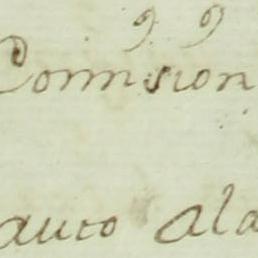 Comision
auto ala